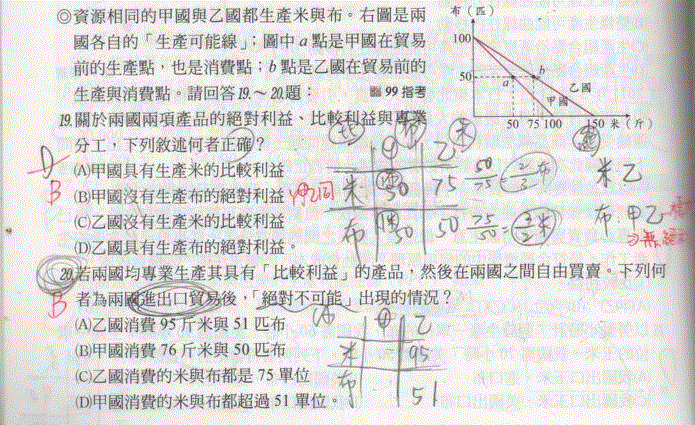 ◎資源相同的甲國與乙國都生產米與布。右圖是兩
國各自的「生產可能線」；圖中a點是甲國在貿易
前的生產點，也是消費點；b點是乙國在貿易前的
生產與消費點。請回答19.～20.題： 99指考
布（匹）
100
50
a
b
乙國
甲國
50 75 100 150 米（斤）
19.關於兩國兩項產品的絕對利益、比較利益與專業
分工，下列敘述何者正確？
(A)甲國具有生產米的比較利益
(B)甲國沒有生產布的絕對利益
(C)乙國沒有生產米的比較利益
(D)乙國具有生產布的絕對利益。
D
B
甲 乙
米 50 75 50/75=2/3布
布 50 50 75/50=3/2米
米乙
布:甲乙
20.若兩國均專業生產其具有「比較利益」的產品，然後在兩國之間自由買賣。下列何
者為兩國進出口貿易後，「絕對不可能」出現的情況？
(A)乙國消費95斤米與51匹布
(B)甲國消費76斤米與50匹布
(C)乙國消費的米與布都是75單位
(D)甲國消費的米與布都超過51單位。
B
甲 乙
米 95
布 51